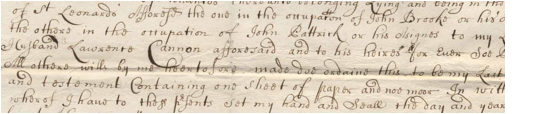 of St Leonards afforesd the one in the occupation of John Brooke or his
the others in the occupation of John Pattrick or his Asignes to my
Husband Lawrence Cannon afforesaid and to his heires for Ever
All others wills by me heertofore made doe ordaine this to be my Last
and testement Containing one sheet of paper and noe moor. In
wherof I have to thess psents set my hand and Seall the day and year